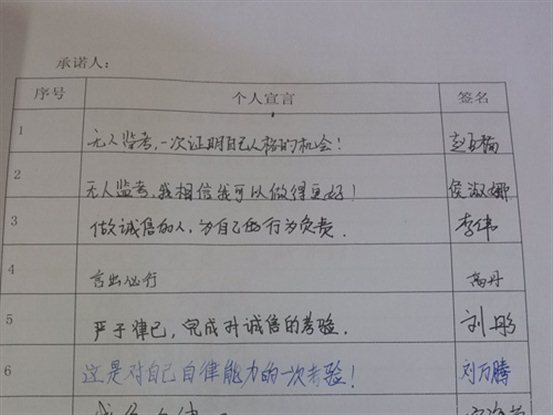 承诺人:
序号 个人宣言 签名
1 无人监考,一次证明自己人格的机会! 赵
2 无人监考,我相信我可以做得更好! 侯淑娜
3 做诚信的人,为自己的行为负责. 李伟
4 言出必行 高丹
5 严于律己,完成对诚信的考验. 刘彤
6 这是对自己自律能力的一次考验! 刘万腾